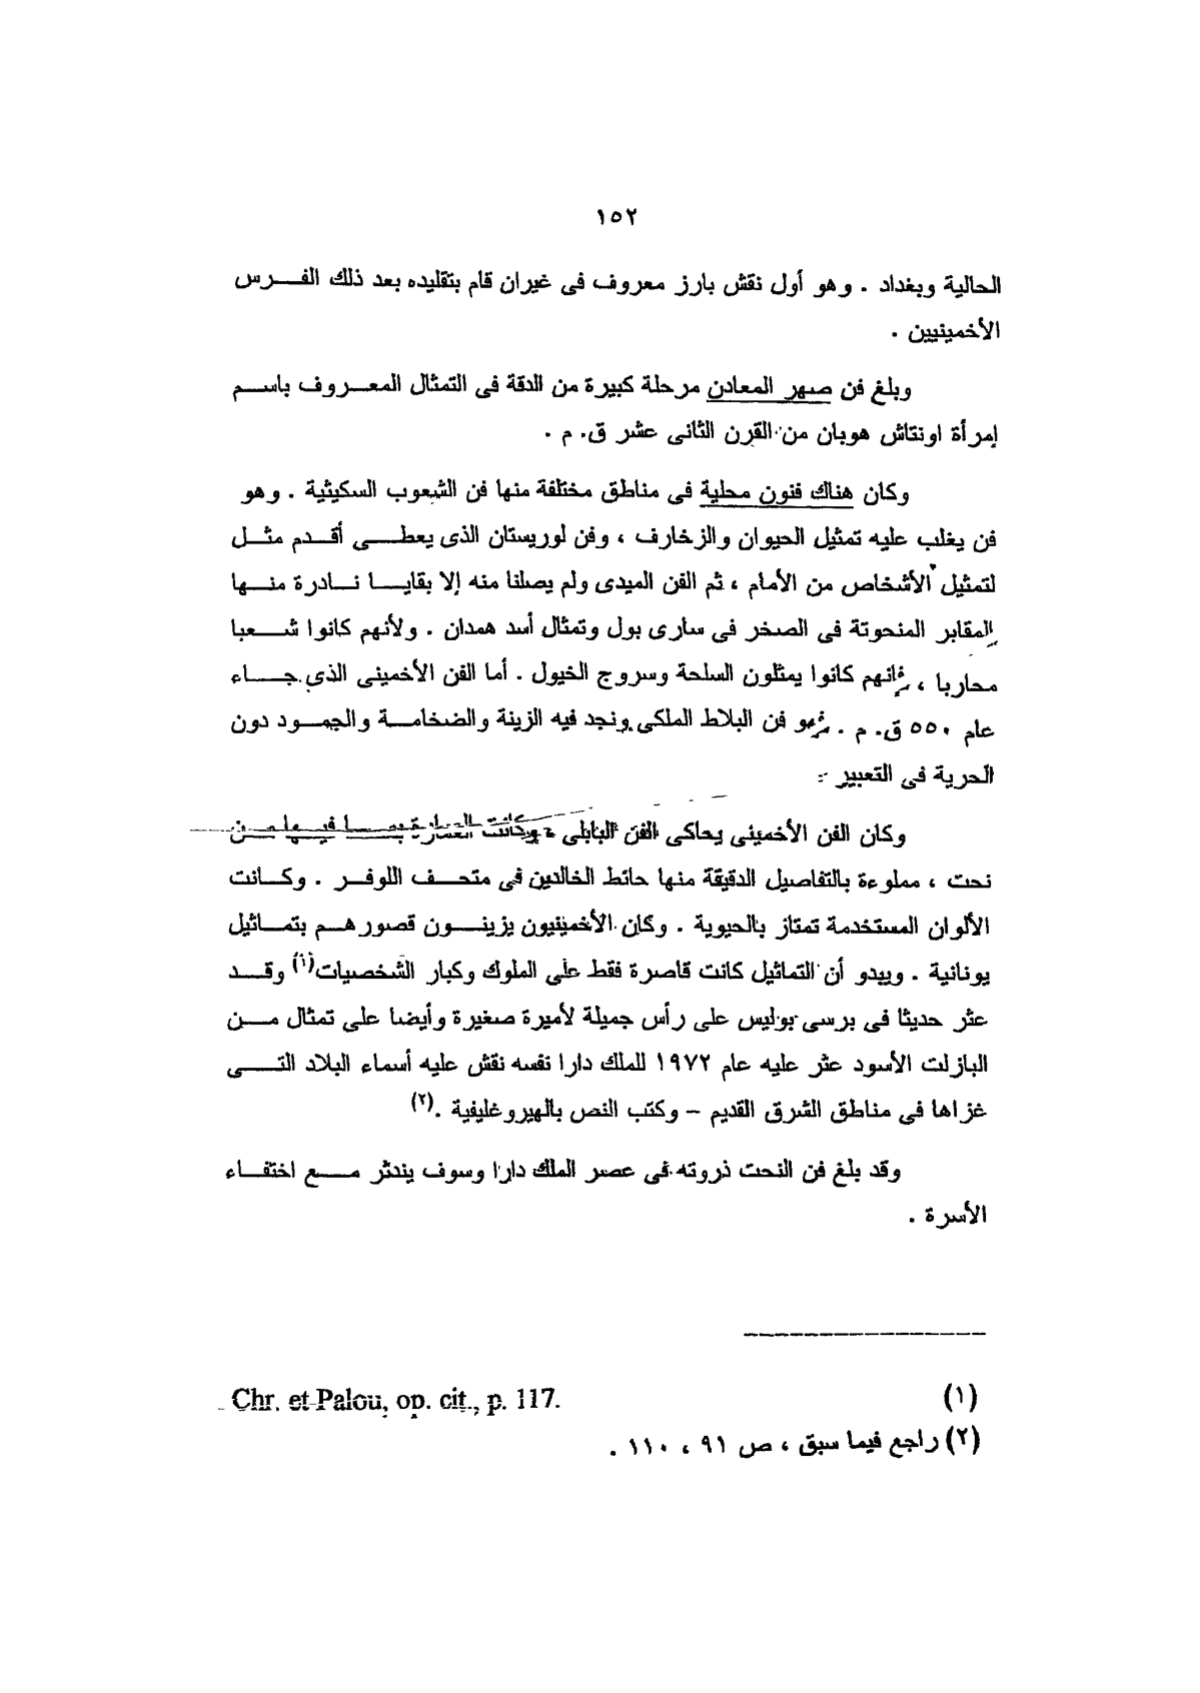 ١٥٢
الحالية وبغداد . وهو أول نقش بارز معروف فى غيران قام بتقليده بعد ذلك الفرس
الأخمينيين .
وبلغ فن صهر المعادن مرحلة كبيرة من الدقة فى التمثال المعروف باسم
إمرأة اونتاش هوبان من القرن الثانى عشر ق. م .
وكان هناك فنون محلية فى مناطق مختلفة منها فن الشعوب السكيثية . وهو
فن يغلب عليه تمثيل الحيوان والزخارف ، وفن لوريستان الذى يعطى أقدم مثل
لتمثيل الأشخاص من الأمام ، ثم الفن الميدى ولم يصلنا منه إلا بقايا نادرة منها
المقابر المنحوتة فى الصخر فى سارى بول وتمثال أسد همدان . ولأنهم كانوا شعبا
محاربا ، فإنهم كانوا يمثلون السلحة وسروج الخيول . أما الفن الأخمينى الذى جاء
عام ٥٥٠ ق. م . فهو فن البلاط الملكى ونجد فيه الزينة والضخامة والجمود دون
الحرية فى التعبير :
وكان الفن الأخمينى يحاكى الفن البابلى - وكانت العمارة بما فيها من
نحت ، مملوءة بالتفاصيل الدقيقة منها حائط الخالدين فى متحف اللوفر . وكانت
الألوان المستخدمة تمتاز بالحيوية . وكان الأخمينيون يزينون قصورهم بتماثيل
يونانية . ويبدو أن التماثيل كانت قاصرة فقط على الملوك وكبار الشخصيات(١) وقد
عثر حديثا فى برسى بوليس على رأس جميلة لأميرة صغيرة وأيضا على تمثال من
البازلت الأسود عثر عليه عام ١٩٧٢ للملك دارا نفسه نقش عليه أسماء البلاد التى
غزاها فى مناطق الشرق القديم – وكتب النص بالهيروغليفية .(٢)
وقد بلغ فن النحت ذروته فى عصر الملك دارا وسوف يندثر مع اختفاء
الأسرة .
(١) Chr. et Palou, op. cit., p. 117.
(٢) راجع فيما سبق ، ص ٩١ ، ١١٠ .